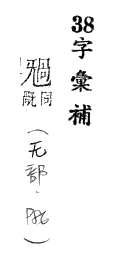 38字彙補
同
(无部·P86)